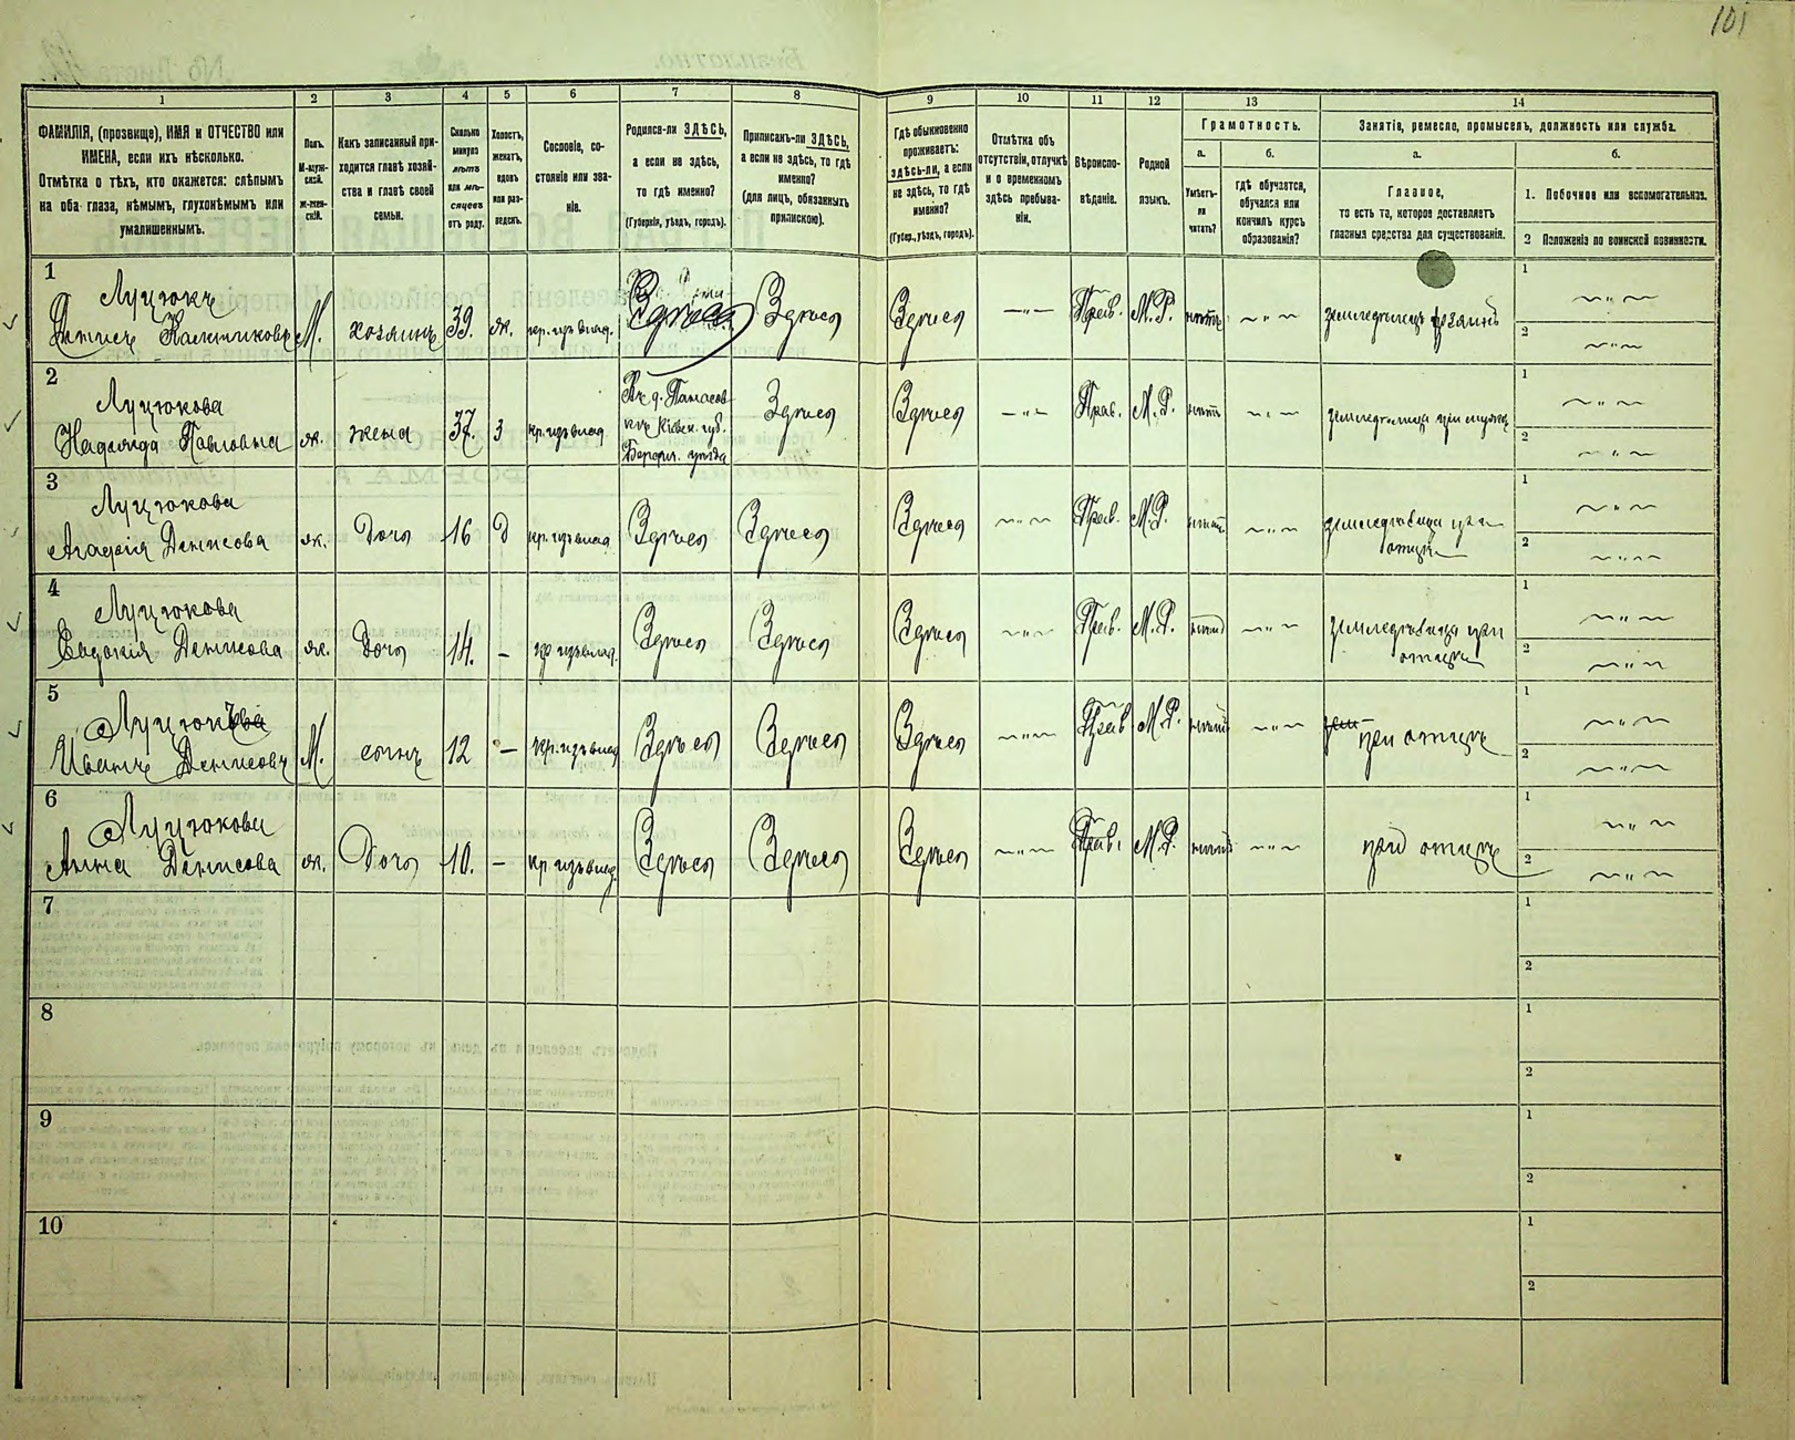 101
1 2 3 4 5 6 7 8 9 10 11 12 13 14
ФАМИЛІЯ, (прозвище), ИМЯ и ОТЧЕСТВО или
ИМЕНА, если ихъ нѣсколько.
Отмѣтка о тѣхъ, кто окажется: слѣпымъ
на оба глаза, нѣмымъ, глухонѣмымъ или
умалишеннымъ.
Полъ.
М-муж-
ской.
ж-жен-
скій.
Какъ записанный при-
ходится главѣ хозяй-
ства и главѣ своей
семьи.
Сколько
минуло
лѣтъ
или мѣ-
сяцевъ
отъ роду.
Холостъ,
женатъ,
вдовъ
или раз-
веденъ.
Сословіе, со-
стояніе или зва-
ніе.
Родился-ли ЗДѢСЬ,
а если не здѣсь,
то гдѣ именно?
(Губернія, уѣздъ, городъ).
Приписанъ-ли ЗДѢСЬ,
а если не здѣсь, то гдѣ
именно?
(для лицъ, обязанныхъ
припискою).
Гдѣ обыкновенно
проживаетъ:
здѣсь-ли, а если
не здѣсь, то гдѣ
именно?
(Губер., уѣздъ, городъ).
Отмѣтка объ
отсутствіи, отлучкѣ
и о временномъ
здѣсь пребыва-
ніи.
Вѣроиспо-
вѣданіе.
Родной
языкъ.
Грамотность.
а.
Умѣетъ-
ли
читать?
б.
гдѣ обучается,
обучался или
кончилъ курсъ
образованія?
Занятіе, ремесло, промыселъ, должность или служба.
а.
Главное,
то есть то, которое доставляетъ
главныя средства для существованія.
б.
1. Побочное или вспомогательное.
2 Положеніе по воинской повинности.
1
Луцюкъ
Денисъ Калениковъ М. хозяинъ 39. ж. кр. изъ влад. Здѣсь Здѣсь Прав. М. Р. нѣтъ земледѣлецъ хозяинъ
1
2
2
Луцюкова
Надежда Павловна ж. жена 37. З кр. изъ влад. Кіевск. губ. Здѣсь Здѣсь Прав. М. Р. нѣтъ земледѣлица при мужѣ
1
2
3
Луцюкова
Агафія Денисова ж. Дочь 16 Д кр. изъ влад. Здѣсь Здѣсь Здѣсь Прав. М. Р. нѣтъ при
отцѣ
1
2
4
Луцюкова
Евдокія Денисова ж. Дочь 14. – кр изъ влад. Здѣсь Здѣсь Здѣсь Прав. М. Р. нѣтъ при
отцѣ
1
2
5
Луцюкъ
Иванъ Денисовъ М. сынъ 12 – кр. изъ влад Здѣсь Здѣсь Здѣсь Прав М. Р. нѣтъ при отцѣ
1
2
6
Луцюкова
Анна Денисова ж. Дочь 10. – кр изъ влад. Здѣсь Здѣсь Здѣсь Прав. М. Р. нѣтъ при отцѣ
1
2
7
1
2
8
1
2
9
1
2
10
1
2